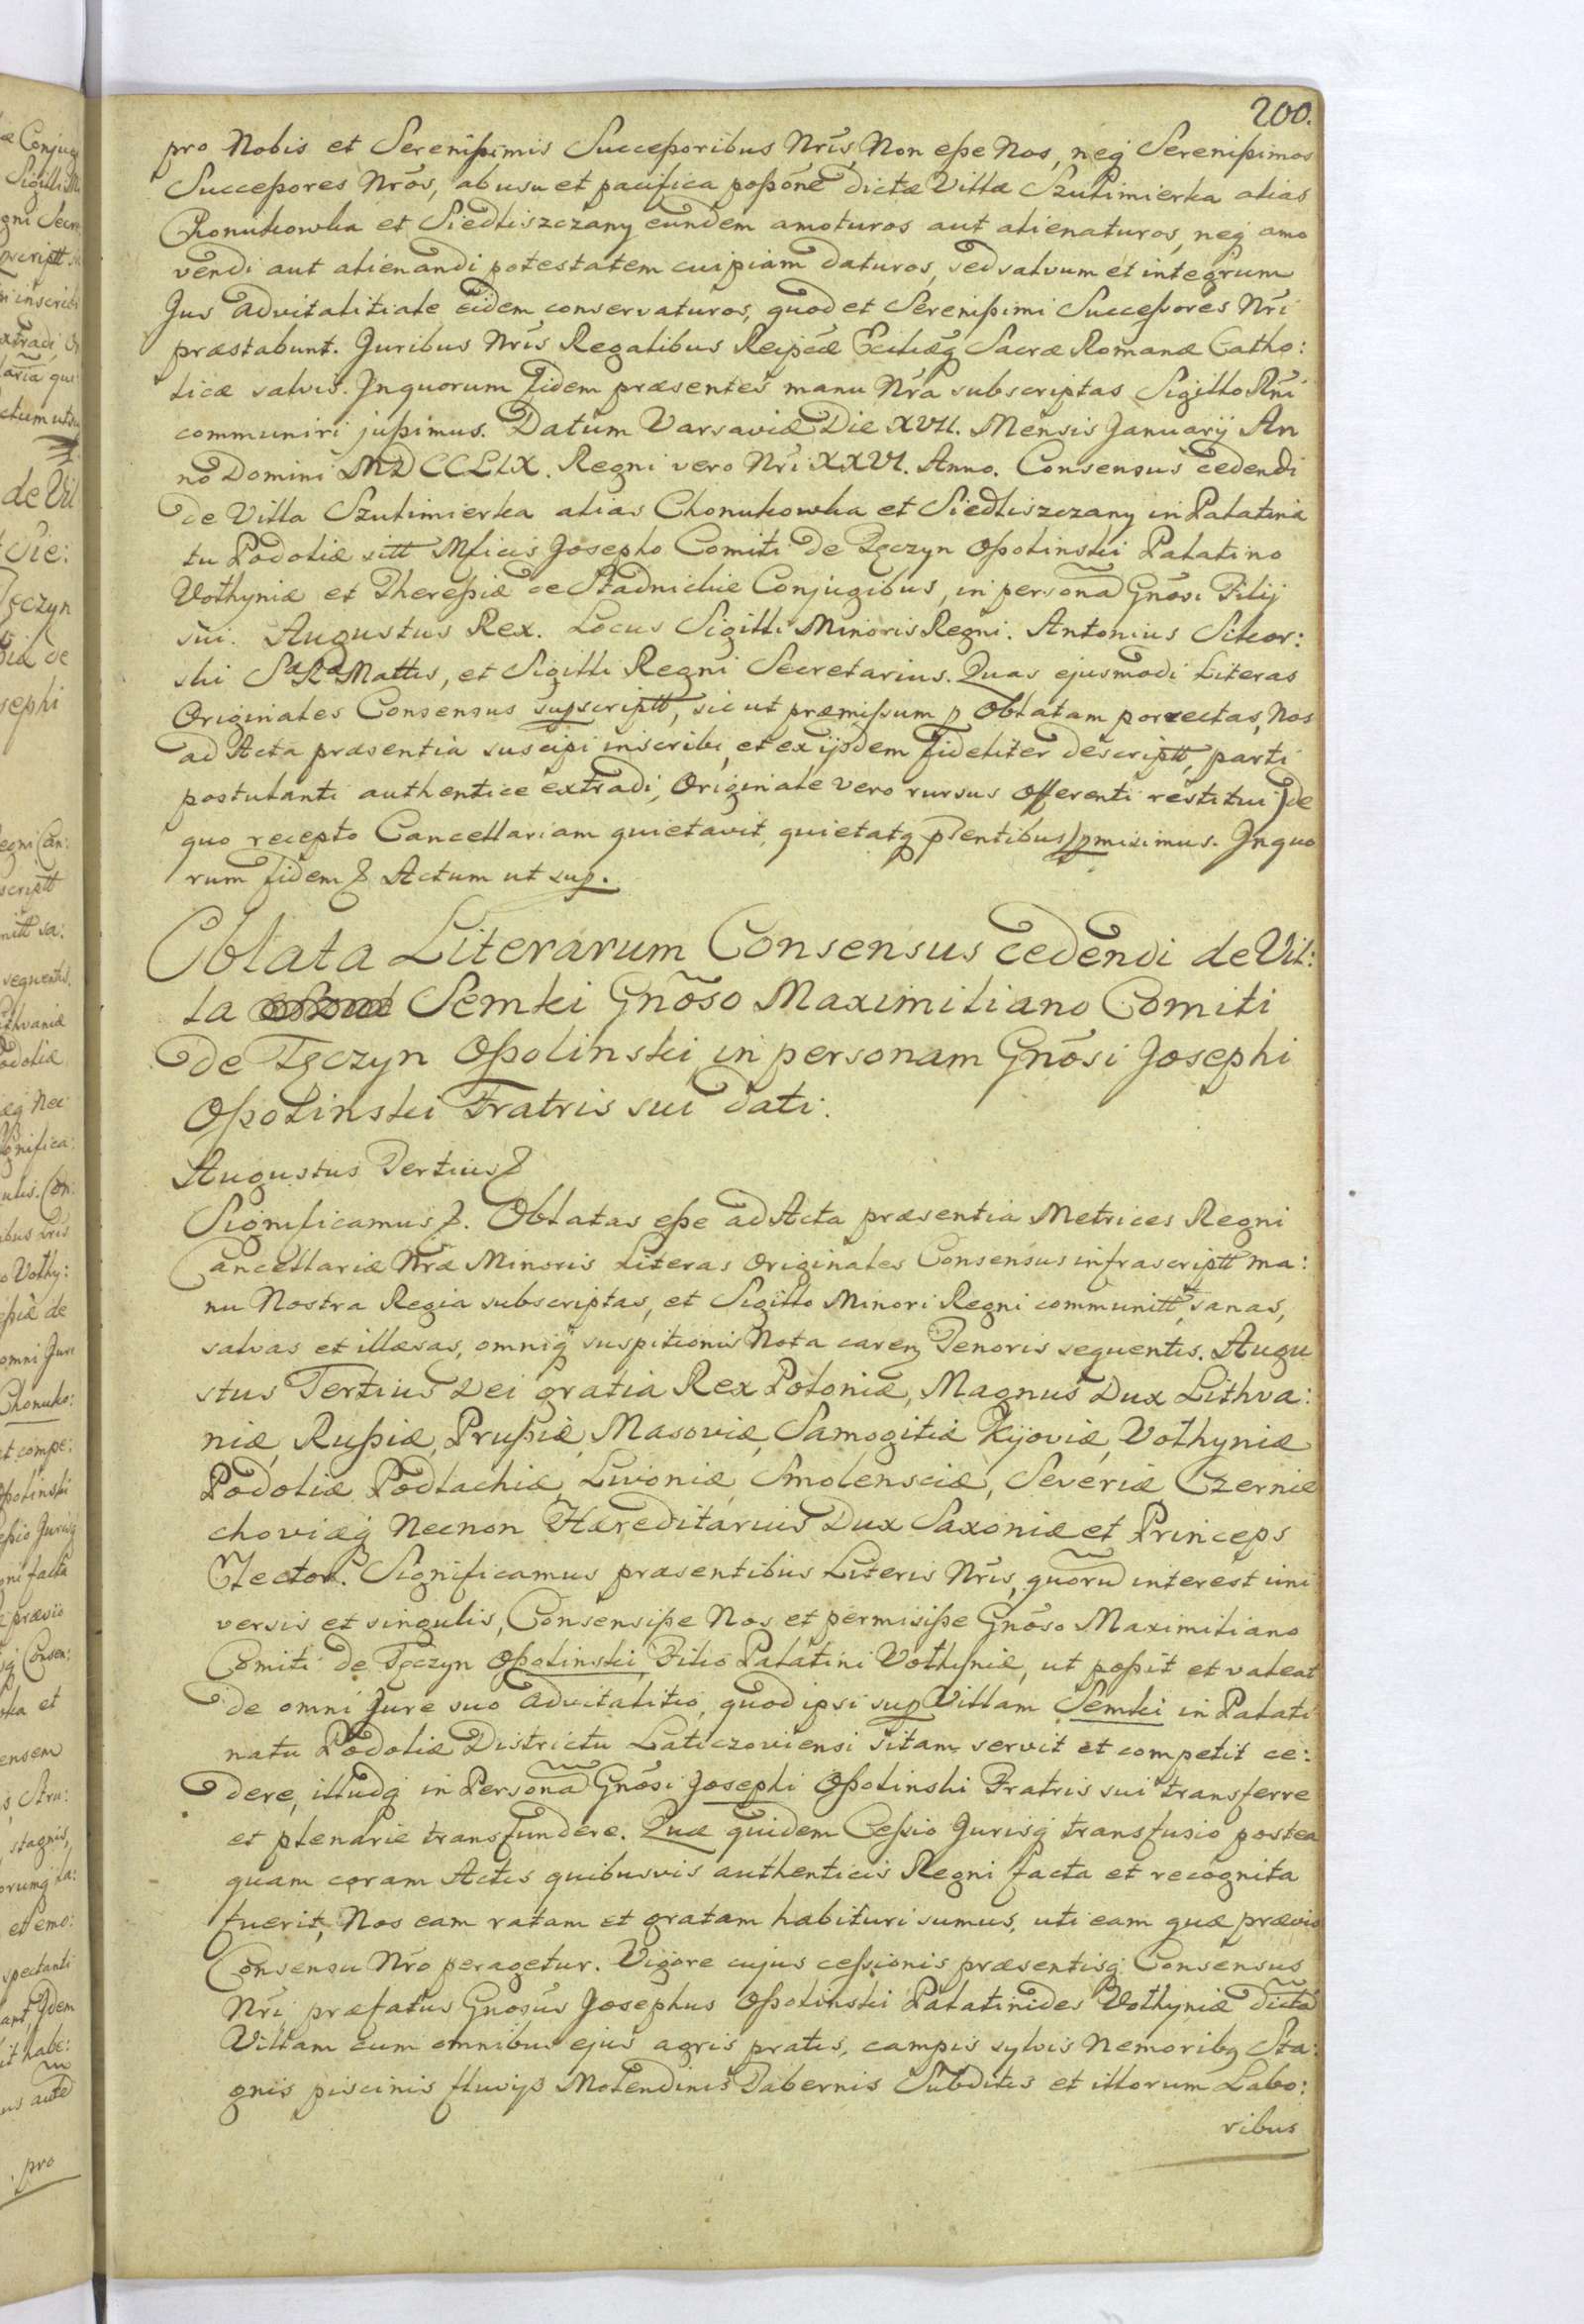 200.
pro Nobis et Serenißimis Succeßoribus Nr̃is Non eße Nos, neq Serenißimos
Succeßores Nr̃os, ab usu et pacifica poßõne dictæ Villæ Szulimierka alias
Chonukowka et Siedliszczany eundem amoturos aut alienaturos, neq amo
vendi aut alienandi potestatem cuipiam daturos, sed salvum et integrum
Jus advitalitiale eidem conservaturos, quod et Serenißimi Succeßores Nr̃i
præstabunt. Juribus Nr̃is Regalibus Reipcæ Eccliæq Sacræ Romanæ Catho:
licæ salvis. In quorum fidem præsentes manu Nr̃a subscriptas Sigillo Rñi
communiri jußimus. Datum Varsaviæ Die XVII. Mensis Januarÿ An
no Domini MDCCLIX. Regni vero Nr̃i XXVI. Anno. Consensus cedendi
de Villa Szulimierka alias Chonukowka et Siedliszczany in Palatina
tu Podoliæ sitt Mficis Josepho Comiti de Tęczyn Oßolinski Palatino
Volhyniæ et Thereßiæ de Stadnickie Conjugibus, in persona͠ Gnõsi Filij
sui. Augustus Rex. Locus Sigilli Minoris Regni. Antonius Sikor:
ski Sæ Ræ Mattis, et Sigilli Regni Secretarius. Quas ejusmodi Literas
Originales Consensus supscriptt, sic ut præmissum p Oblatam porrectas, Nos
ad Acta præsentia suscipi inscribi, et ex ijsdem fideliter descriptt, parti
postulanti authentice extradi, Originale vero rursus Offerenti restitui) de
quo recepto Cancellariam quietavit, quietatq pſentibus) pmisimus. In quo
rum fidem & Actum ut sup.
Oblata Literarum Consensus cedendi de Vil:
la Semki Gnõso Maximiliano Comiti
de Tęczyn Oßolinski in personam Gnõsi Josephi
Oßolinski Fratris sui dati.
Augustus Tertius &
Significamus &. Oblatas eße ad Acta præsentia Metrices Regni
Cancellariæ Nr̃æ Minoris Literas Originales Consensus infrascriptt ma:
nu Nostra Regia subscriptas, et Sigillo Minori Regni communitt, sanas,
salvas et illæsas, omniq suspitionis Nota caren Tenoris sequentis. Augu
stus Tertius Dei gratia Rex Poloniæ, Magnus Dux Lithva:
niæ, Rußiæ, Prußiæ, Masoviæ, Samogitiæ Kijoviæ, Volhyniæ
Podoliæ Podlachiæ, Livoniæ, Smolensciæ, Severiæ Czernie
choviæq Necnon Hæreditarius Dux Saxoniæ et Princeps
Elector. Significamus præsentibus Literis Nr̃is, quoru͠ interest uni
versis et singulis, Consensiße Nos et permisiße Gnõso Maximiliano
Comiti de Tęczyn Oßolinski, Filio Palatini Volhyniæ, ut poßit et valeat
de omni Jure suo advitalitio, quod ipsi sup Villam Semki in Palati
natu Podoliæ Districtu Laticzoviensi sitam servit et competit ce:
dere, illudq in Persona͠ Gnõsi Josephi Oßolinski Fratris sui transferre
et plenarie transfundere. Quæ quidem Ceßio Jurisq transfusio postea
quam coram Actis quibusvis authenticis Regni facta et recognita
fuerit, Nos eam ratam et gratam habituri sumus, uti eam quæ prævio
Consensu Nr̃o peragetur. Vigore cujus ceßionis præsentisq Consensus
Nr̃i præfatus Gnosus Josephus Oßolinski Palatinides Volhyniæ dicta͠
Villam cum omnibus ejus agris pratis, campis sylvis Nemoribq Sta:
gnis piscinis fluvijs Molendinis Tabernis Subditis et illorum Labo:
ribus